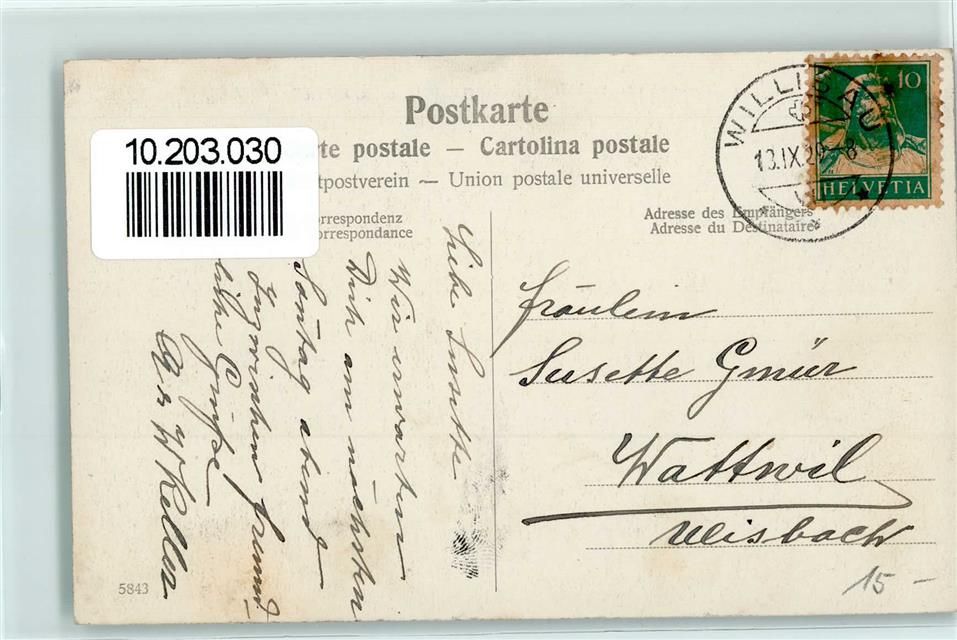 Postkarte
10.203.030
rte postale – Cartolina postale
tpostverein – Union postale universelle
orrespondenz
orrespondance
Adresse des Empfängers
Adresse du Destinataire
WILLISAU
13.IX.29.–8
10
HELVETIA
Liebe Susette
Wir erwarten
Dich am nächsten
Sontag abend
Inzwischen freund-
liche Grüße
W. Keller
Fräulein
Susette Gmür
Wattwil
Ulisbach
5843
15 –